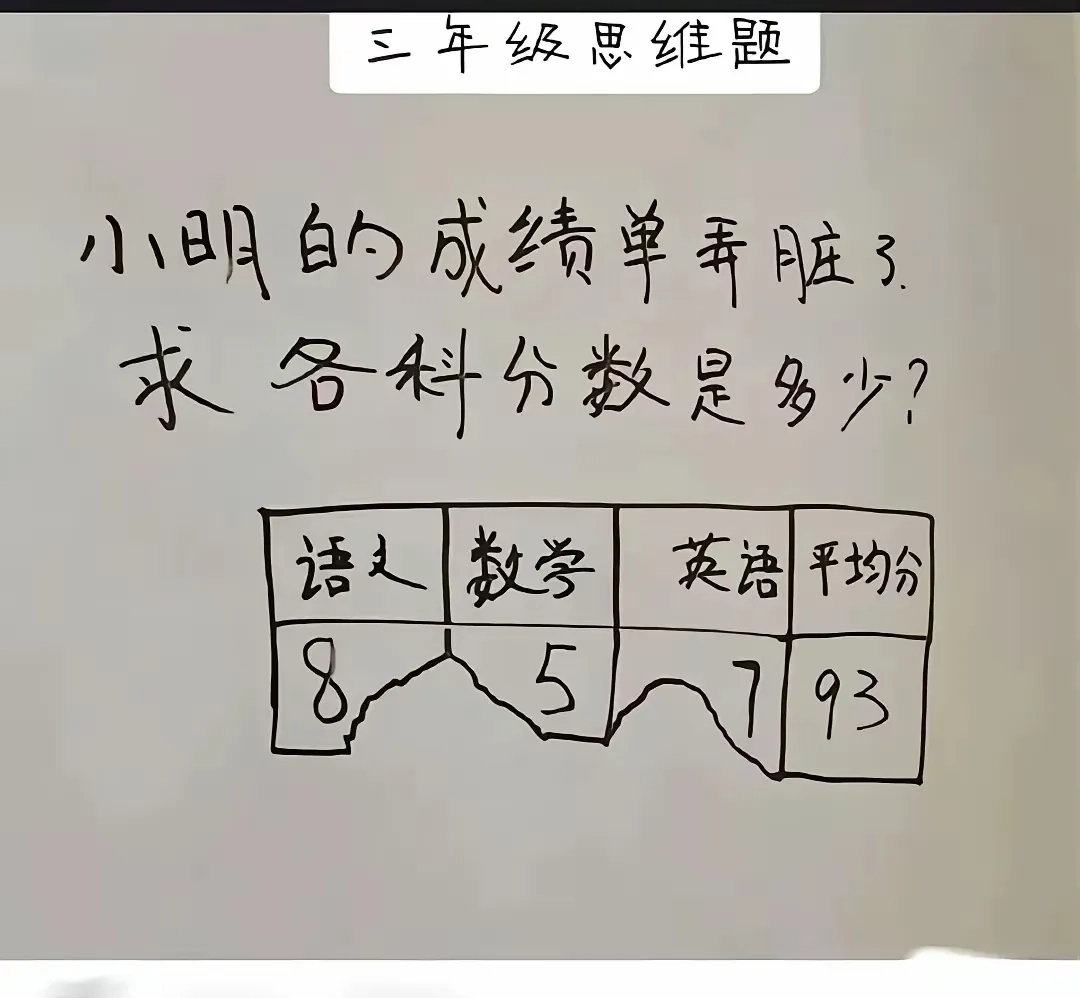 三年级思维题
小明的成绩单弄脏了.
求各科分数是多少?
语文 数学 英语 平均分
8 5 7 93